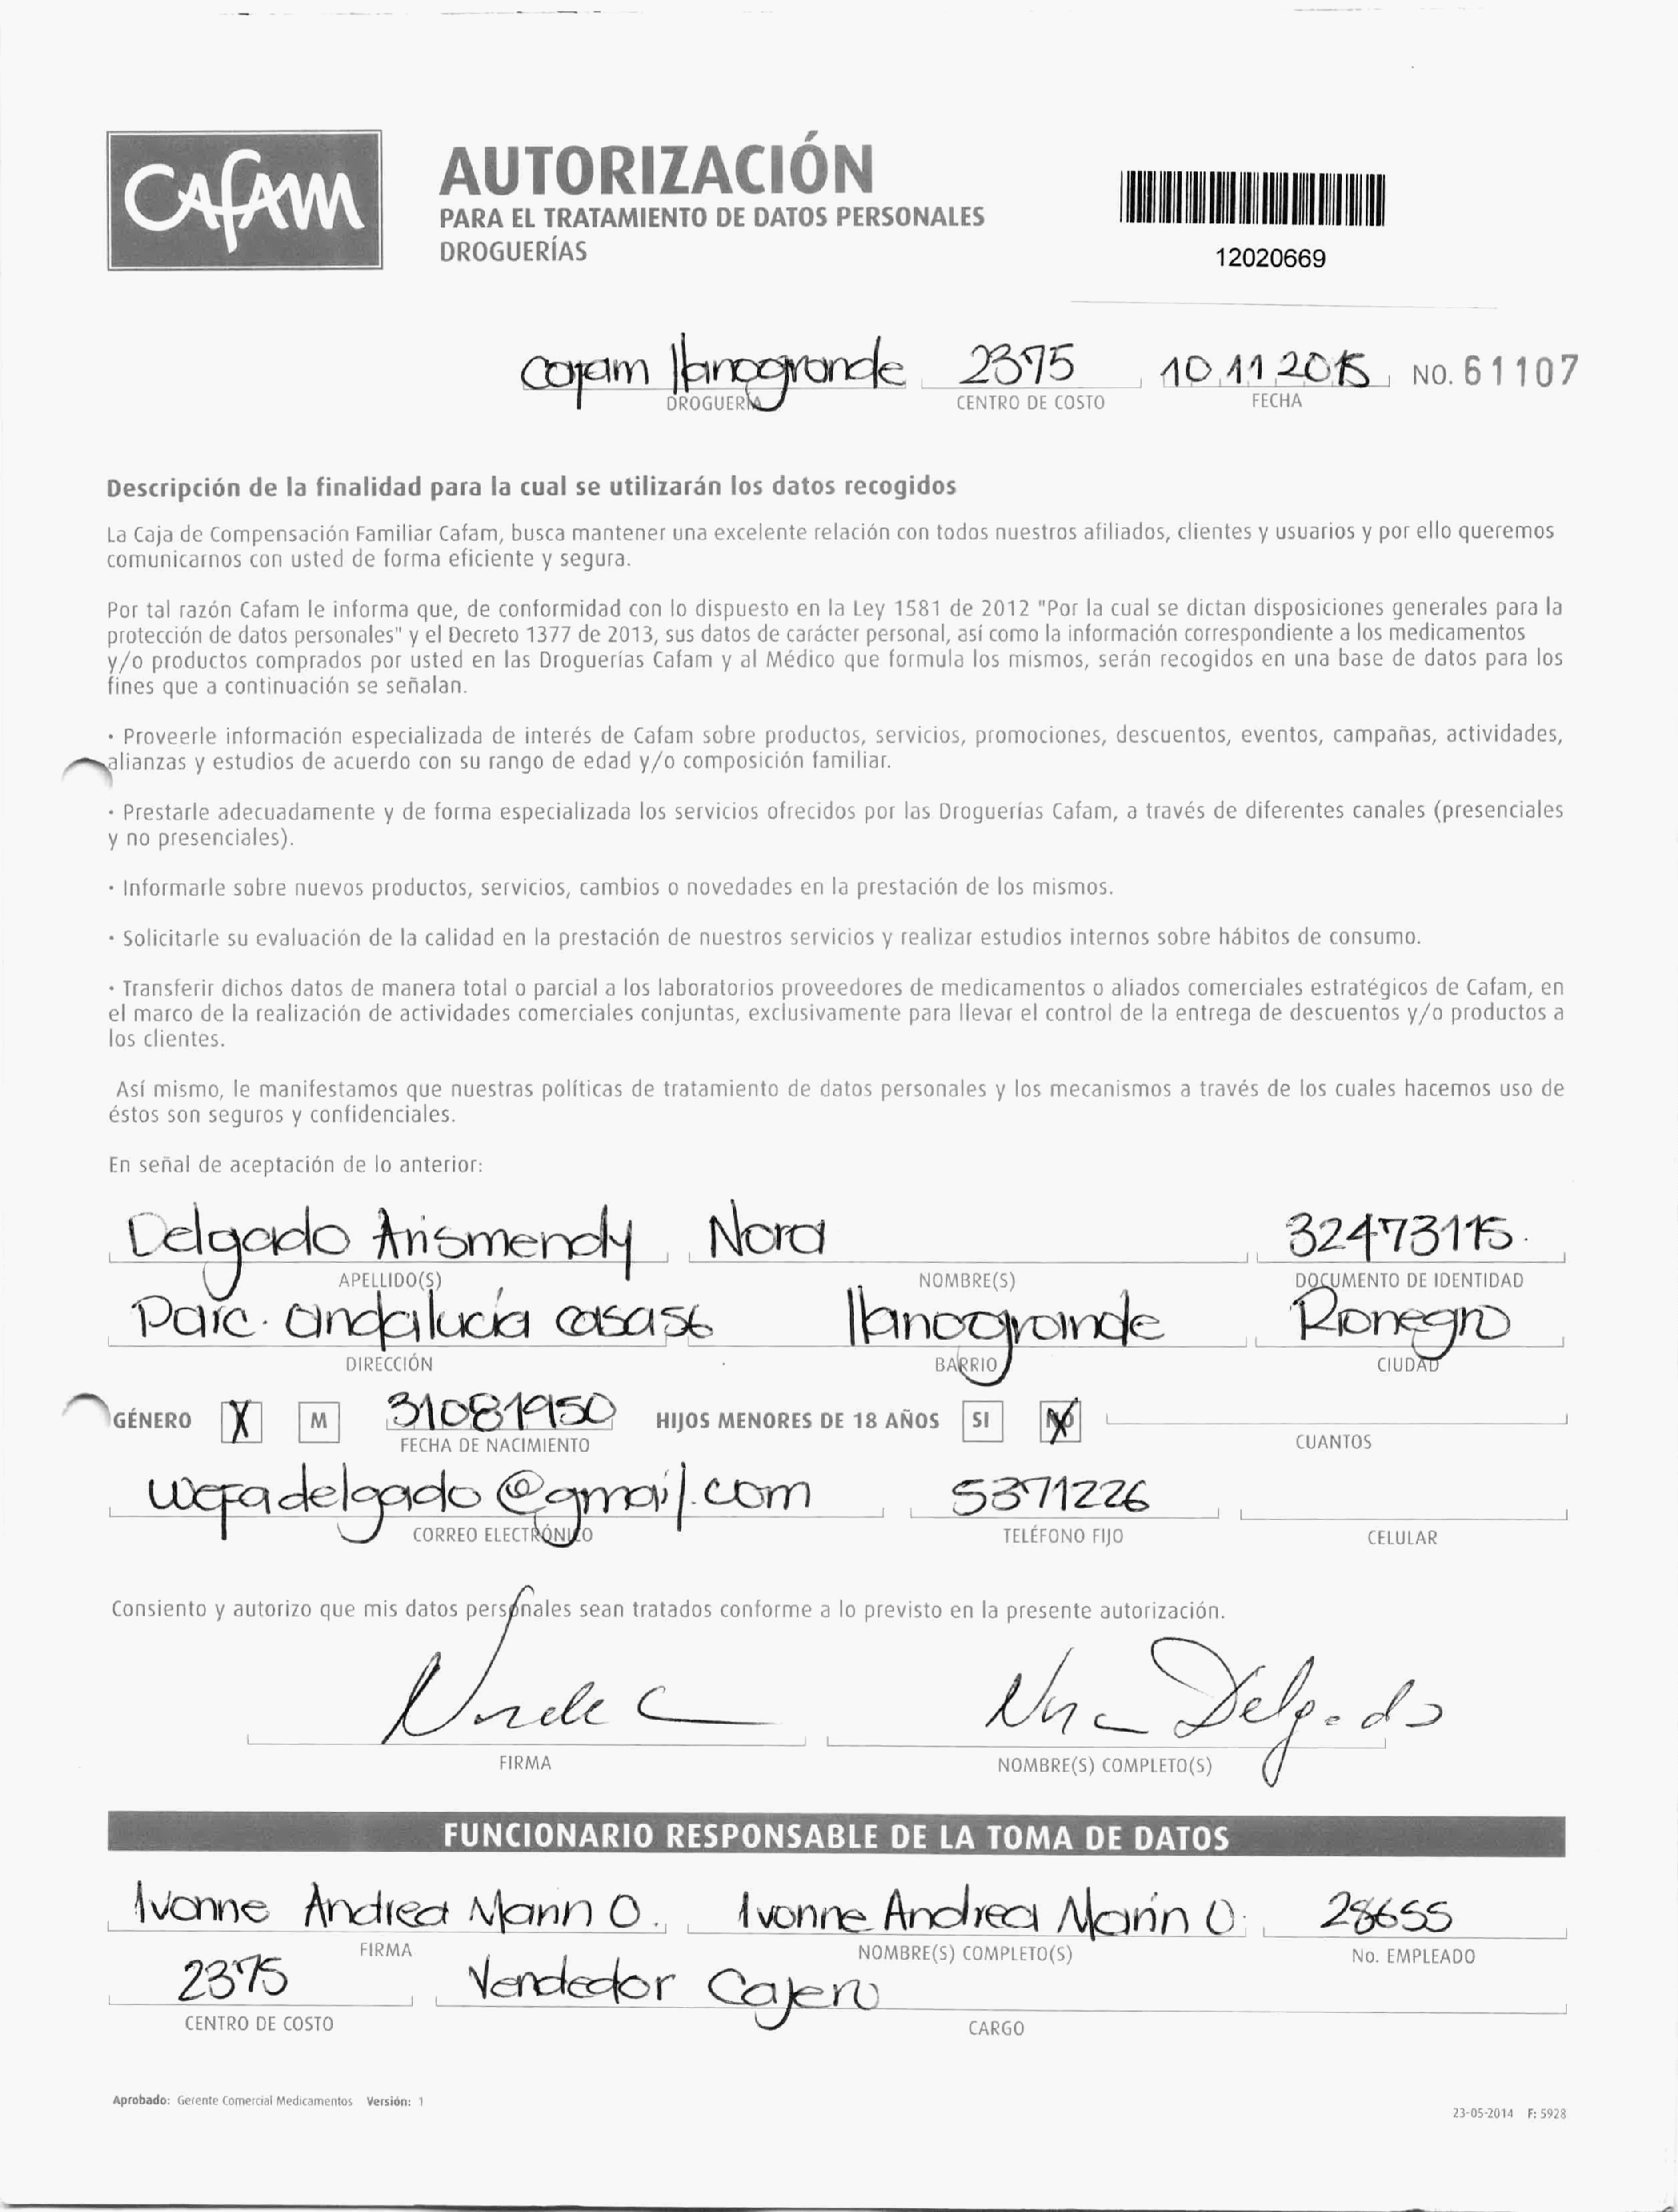 Cafam
AUTORIZACIÓN
PARA EL TRATAMIENTO DE DATOS PERSONALES
DROGUERÍAS
12020669
Cafam llanogrande 2375 10 11 2015 NO. 61107
DROGUERÍA CENTRO DE COSTO FECHA
Descripción de la finalidad para la cual se utilizarán los datos recogidos
La Caja de Compensación Familiar Cafam, busca mantener una excelente relación con todos nuestros afiliados, clientes y usuarios y por ello queremos
comunicarnos con usted de forma eficiente y segura.
Por tal razón Cafam le informa que, de conformidad con lo dispuesto en la Ley 1581 de 2012 "Por la cual se dictan disposiciones generales para la
protección de datos personales" y el Decreto 1377 de 2013, sus datos de carácter personal, así como la información correspondiente a los medicamentos
y/o productos comprados por usted en las Droguerías Cafam y al Médico que formula los mismos, serán recogidos en una base de datos para los
fines que a continuación se señalan.
· Proveerle información especializada de interés de Cafam sobre productos, servicios, promociones, descuentos, eventos, campañas, actividades,
alianzas y estudios de acuerdo con su rango de edad y/o composición familiar.
· Prestarle adecuadamente y de forma especializada los servicios ofrecidos por las Droguerías Cafam, a través de diferentes canales (presenciales
y no presenciales).
· Informarle sobre nuevos productos, servicios, cambios o novedades en la prestación de los mismos.
· Solicitarle su evaluación de la calidad en la prestación de nuestros servicios y realizar estudios internos sobre hábitos de consumo.
· Transferir dichos datos de manera total o parcial a los laboratorios proveedores de medicamentos o aliados comerciales estratégicos de Cafam, en
el marco de la realización de actividades comerciales conjuntas, exclusivamente para llevar el control de la entrega de descuentos y/o productos a
los clientes.
Así mismo, le manifestamos que nuestras políticas de tratamiento de datos personales y los mecanismos a través de los cuales hacemos uso de
éstos son seguros y confidenciales.
En señal de aceptación de lo anterior:
Delgado Arismendy Nora 32473115.
APELLIDO(S) NOMBRE(S) DOCUMENTO DE IDENTIDAD
Parc. andalucía casa56 llanogrande Rionegro
DIRECCIÓN BARRIO CIUDAD
GÉNERO X M 31081950 HIJOS MENORES DE 18 AÑOS SI NO X
FECHA DE NACIMIENTO CUANTOS
wefadelgado@gmail.com 5371226
CORREO ELECTRÓNICO TELÉFONO FIJO CELULAR
Consiento y autorizo que mis datos personales sean tratados conforme a lo previsto en la presente autorización.
Nora Delgado
FIRMA NOMBRE(S) COMPLETO(S)
FUNCIONARIO RESPONSABLE DE LA TOMA DE DATOS
Ivonne Andrea Marin O. Ivonne Andrea Marín O. 28655
FIRMA NOMBRE(S) COMPLETO(S) No. EMPLEADO
2375 Vendedor Cajero
CENTRO DE COSTO CARGO
Aprobado: Gerente Comercial Medicamentos Versión: 1
23-05-2014 F: 5928